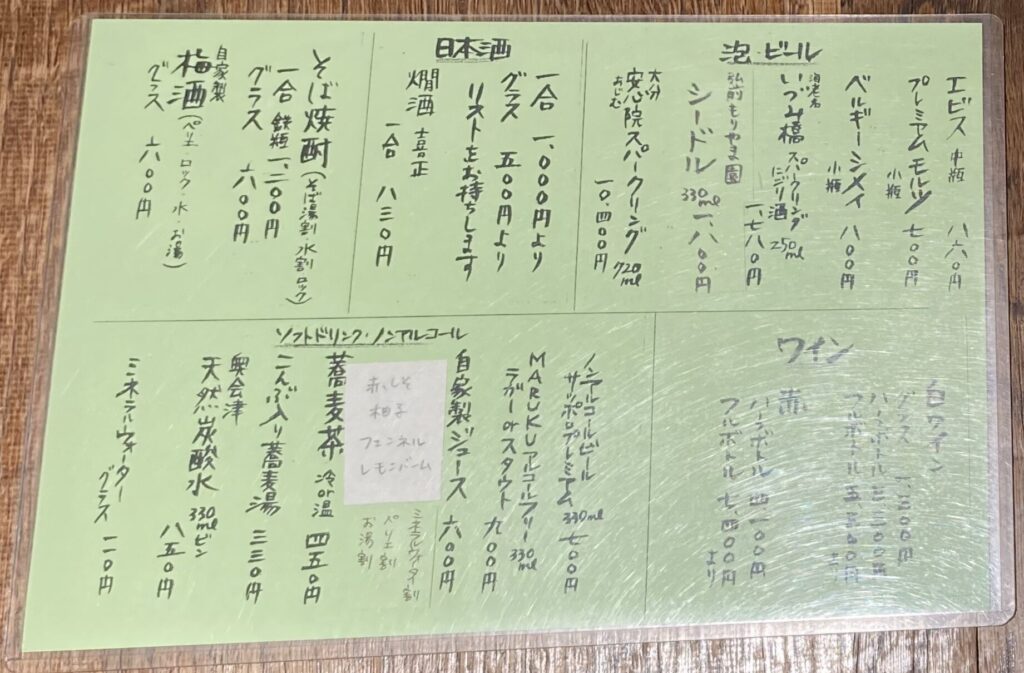 泡・ビール
エビス 中瓶 八六〇円
プレミアムモルツ 小瓶 七〇〇円
ベルギーシメイ 小瓶 八〇〇円
海老名
いづみ橋 スパークリング にごり酒 250ml 一、七八〇円
弘前もりやま園
シードル 330ml 一、八〇〇円
大分
安心院スパークリング 720ml
あじむ
一〇、四〇〇円
日本酒
一合 一、〇〇〇円より
グラス 五〇〇円より
リストをお持ちします
燗酒 喜正
一合 八三〇円
そば焼酎(そば湯割 水割 ロック)
一合 鉄瓶 一、二〇〇円
グラス 六〇〇円
自家製
梅酒(ペリエ・ロック・水・お湯)
グラス 六〇〇円
ワイン
白ワイン
グラス
ハーフボトル
フルボトル
赤
ハーフボトル 四、一〇〇円
フルボトル 七、四〇〇円
より
ソフトドリンク・ノンアルコール
ノンアルコールビール
サッポロプレミアム 330ml 七〇〇円
MARUKUアルコールフリー
ラガーorスタウト 330ml 九〇〇円
自家製ジュース 六〇〇円
赤しそ
柚子
フェンネル
レモンバーム
ペリエ割
お湯割
蕎麦茶 冷or温 四五〇円
こんぶ入り蕎麦湯 三三〇円
奥会津
天然炭酸水 330mlビン 八五〇円
ミネラルウォーター
グラス 一一〇円